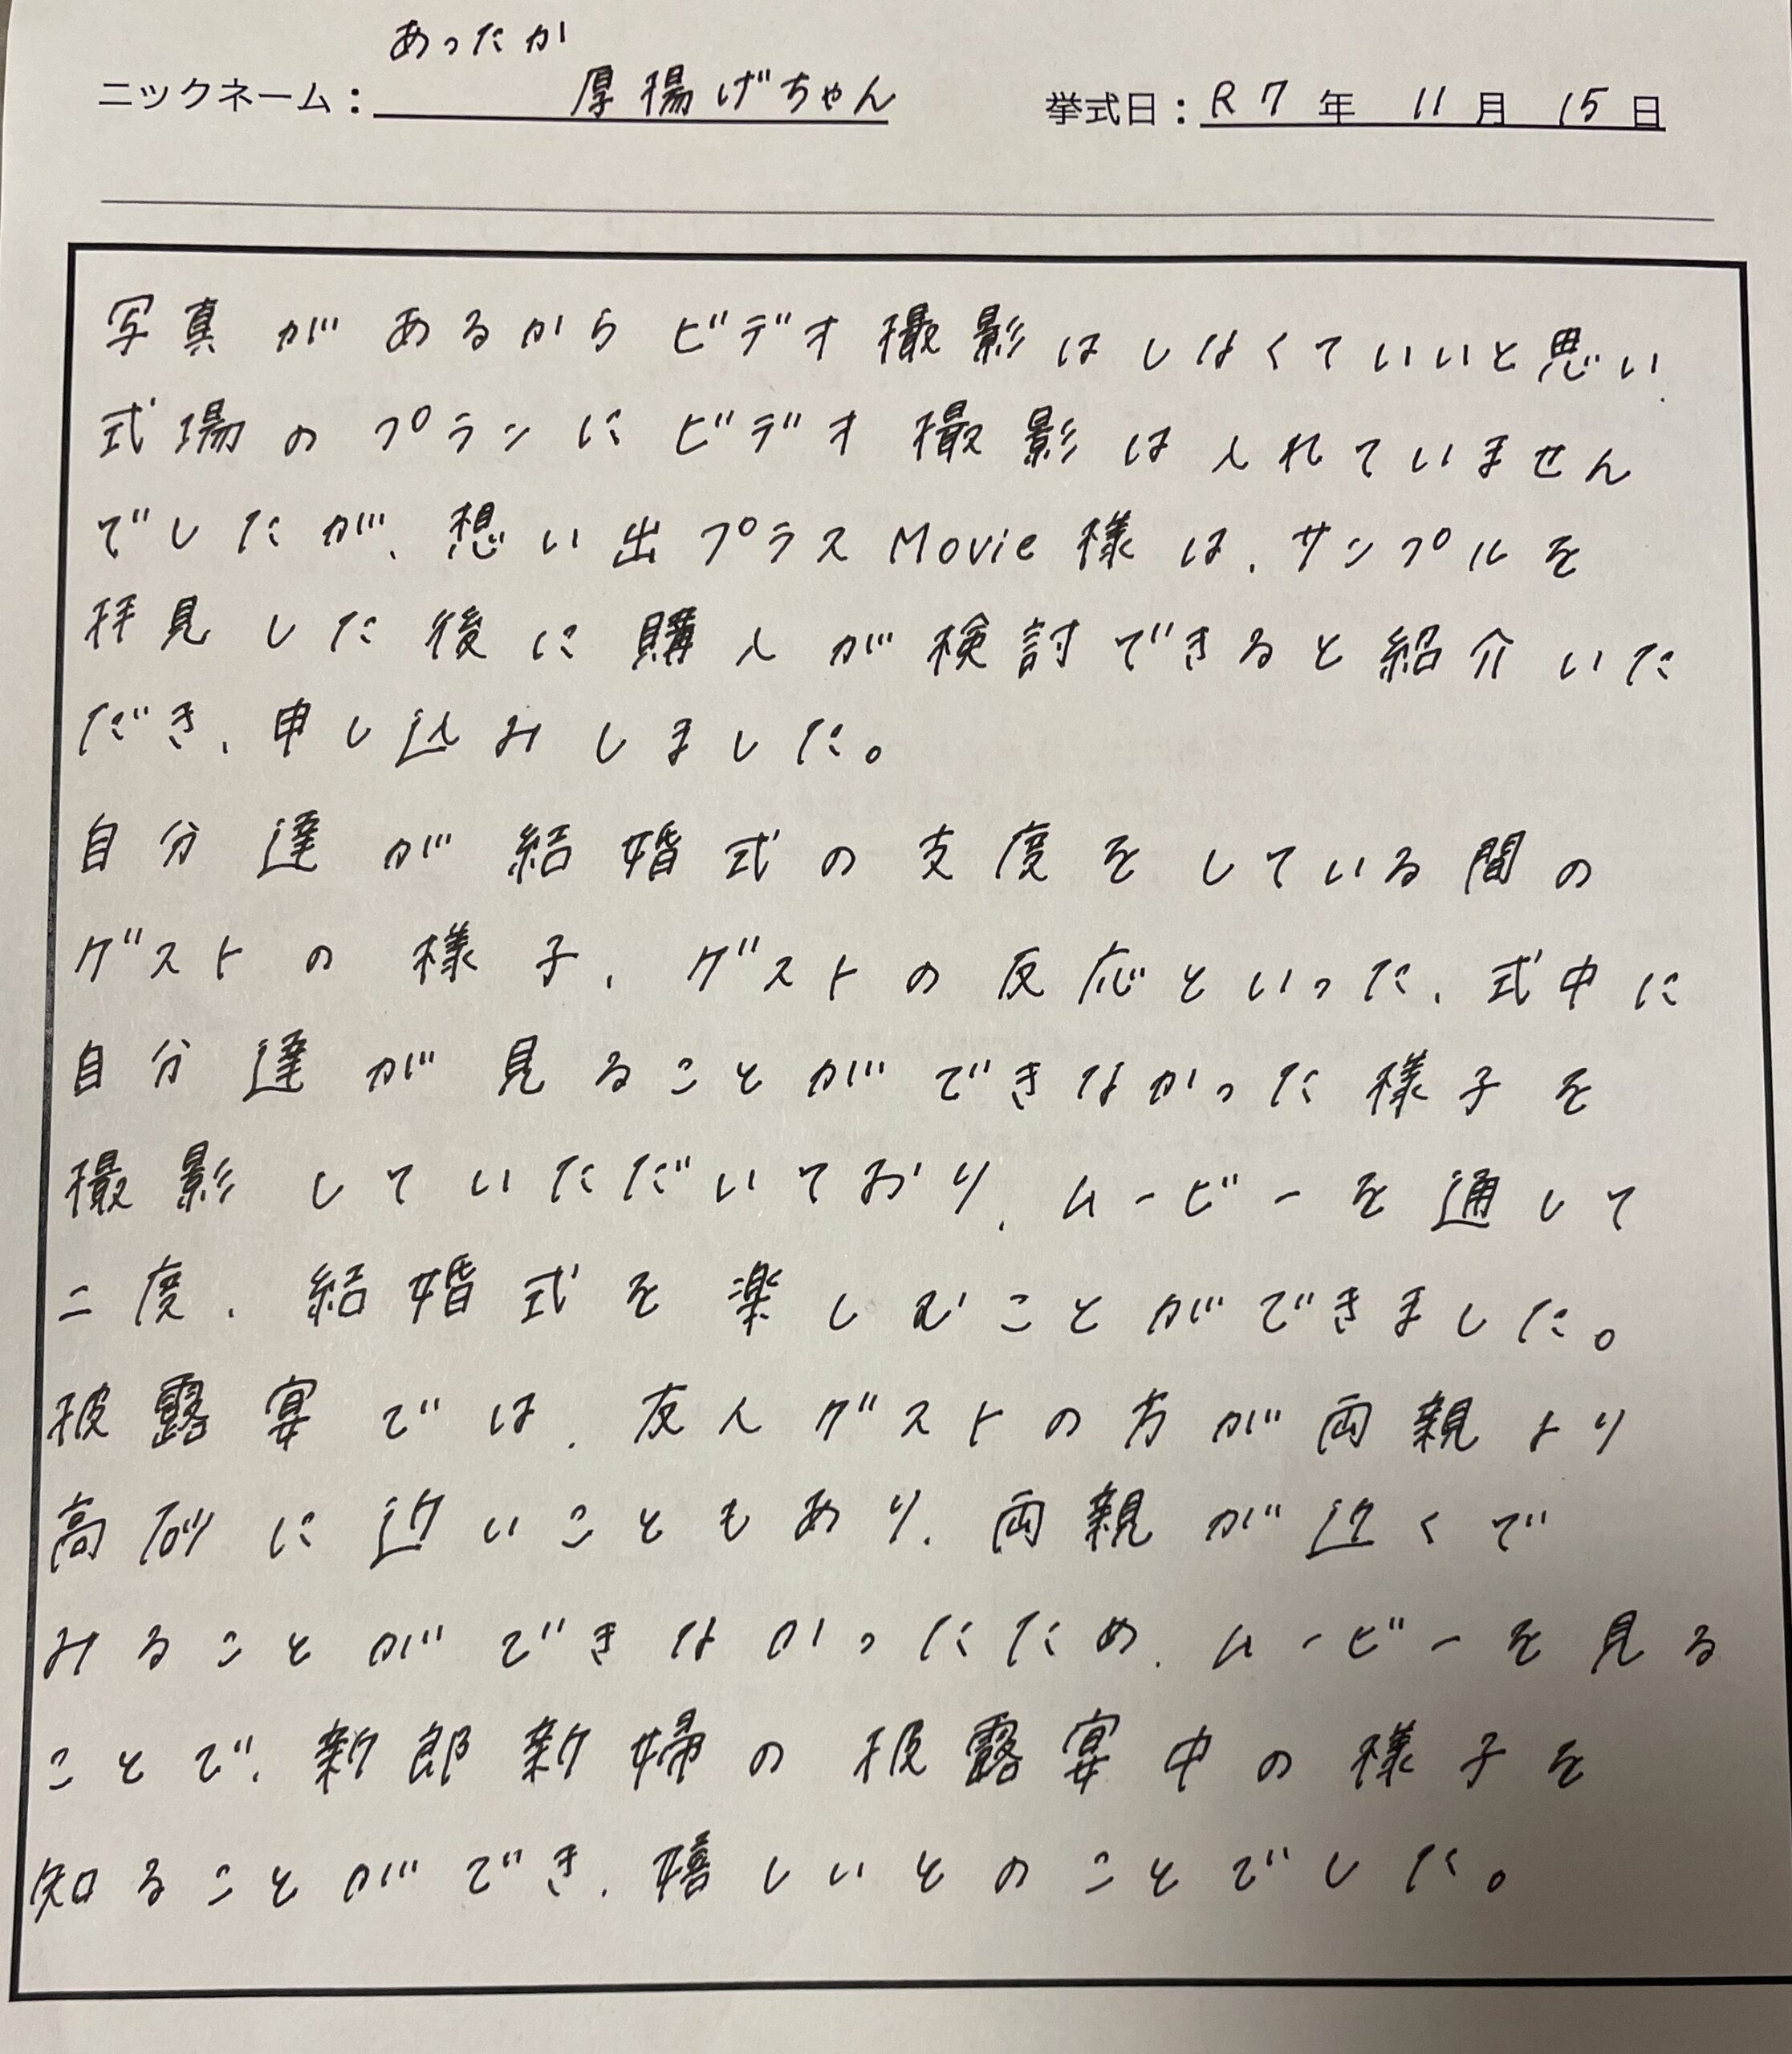 あったか
ニックネーム：厚揚げちゃん 挙式日：R7年 11月 15日
写真があるからビデオ撮影はしなくていいと思い
式場のプランにビデオ撮影は入れていません
でしたが、想い出プラスMovie様は、サンプルを
拝見した後に購入が検討できると紹介いた
だき、申し込みしました。
自分達が結婚式の支度をしている間の
ゲストの様子、ゲストの反応といった、式中に
自分達が見ることができなかった様子を
撮影していただいており、ムービーを通して
二度、結婚式を楽しむことができました。
披露宴では、友人ゲストの方が両親より
高砂に近いこともあり、両親が近くで
みることができなかったため、ムービーを見る
ことで、新郎新婦の披露宴中の様子を
知ることができ、嬉しいとのことでした。